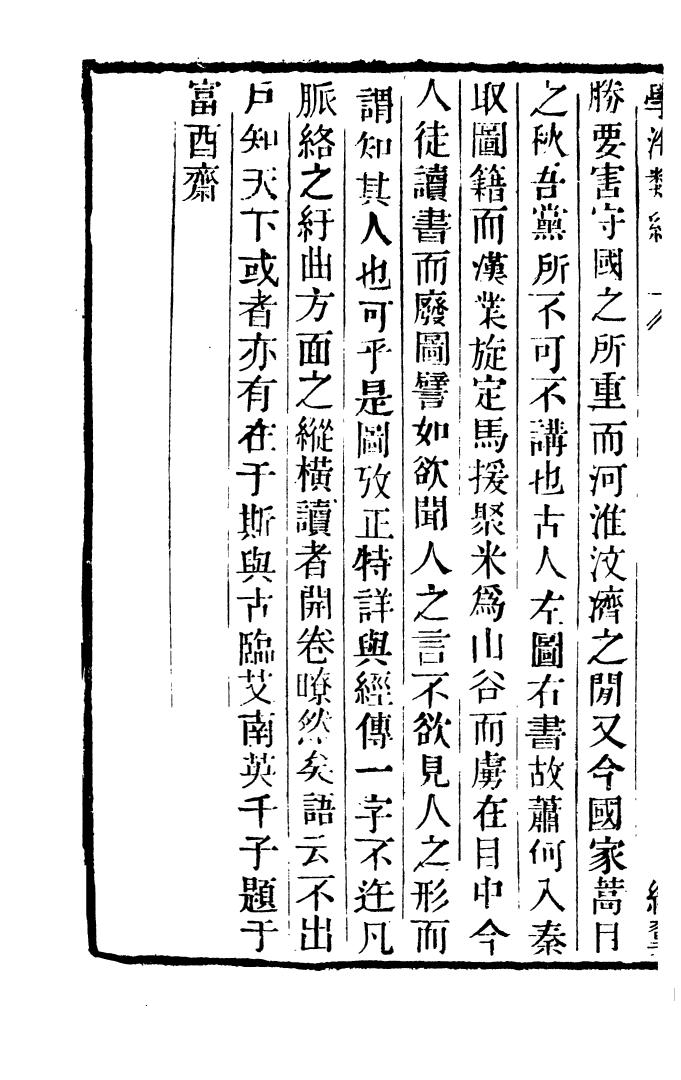 學海類編
勝要害守國之所重而河淮汶濟之閒又今國家蒿目
之秋吾黨所不可不講也古人左圖右書故蕭何入秦
取圖籍而漢業旋定馬援聚米爲山谷而虜在目中今
人徒讀書而廢圖譬如欲聞人之言不欲見人之形而
謂知其人也可乎是圖攷正特詳與經傳一字不迕凡
脈絡之紆曲方面之縱橫讀者開卷瞭然矣語云不出
戸知天下或者亦有在于斯與古臨艾南英千子題于
富酉齋